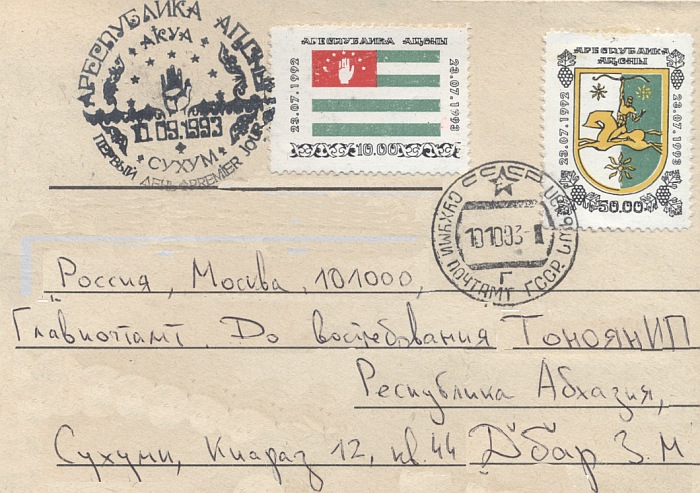 АҦСНЫ АРЕСПУБЛИКА
АҞУА
10.09.1993
СУХУМ
ПЕРВЫЙ ДЕНЬ PREMIER JOUR
АРЕСПУБЛИКА АҦСНЫ
23.07.1992
23.07.1993
10.00
АРЕСПУБЛИКА
АҦСНЫ
23.07.1992
23.07.1993
50.00
СССР
СУХУМИ ПОЧТАМТ ГССР
101093
Г
Россия, Москва, 101000,
Главпочтамт. До востребования Тоноян ИП
Республика Абхазия,
Сухуми, Киараз 12, кв. 44 Дбар З. М